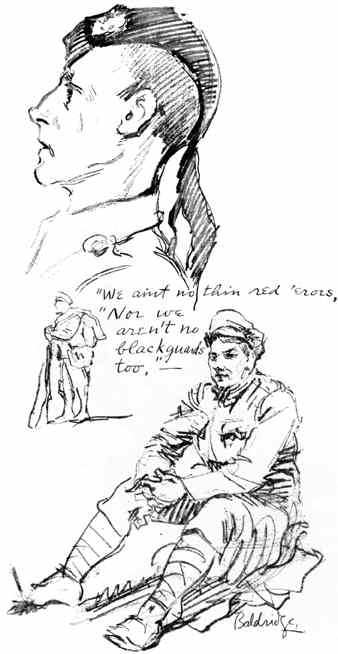 "We aint no thin red 'eroes,
"Nor we
aren't no
blackguards
too,"—
Baldridge.